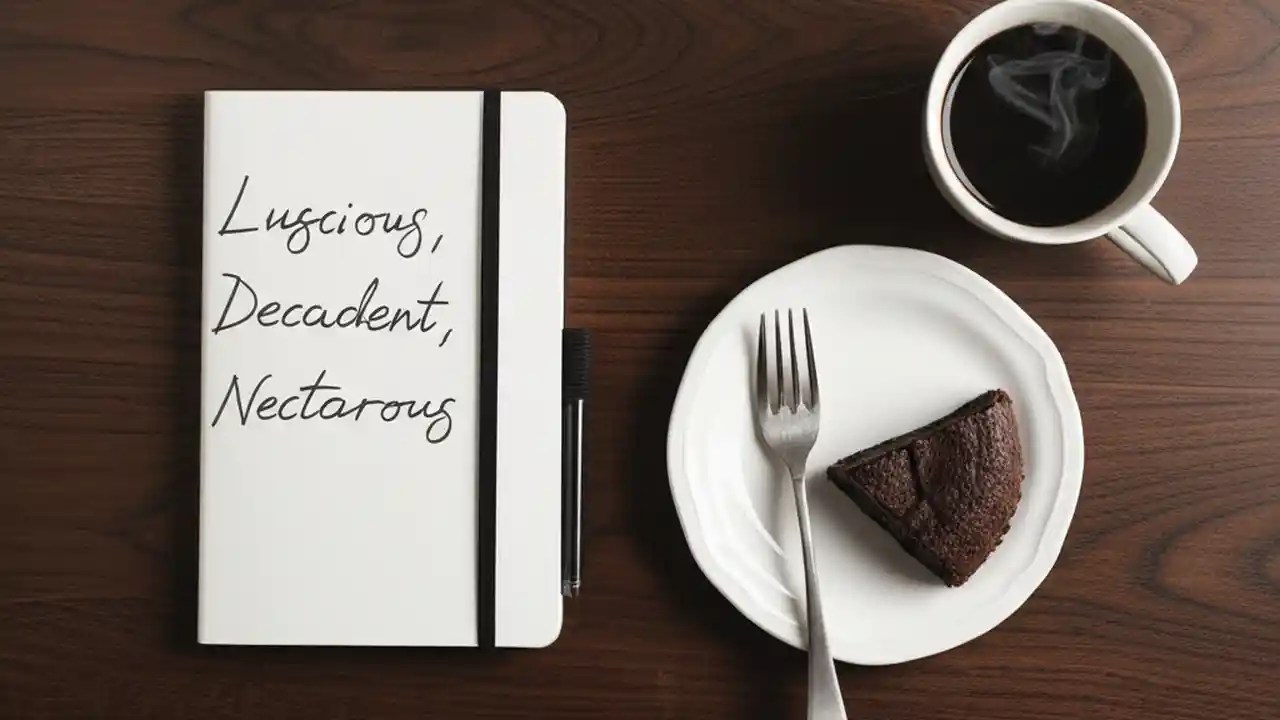 Luscious,
Decadent,
Nectarous